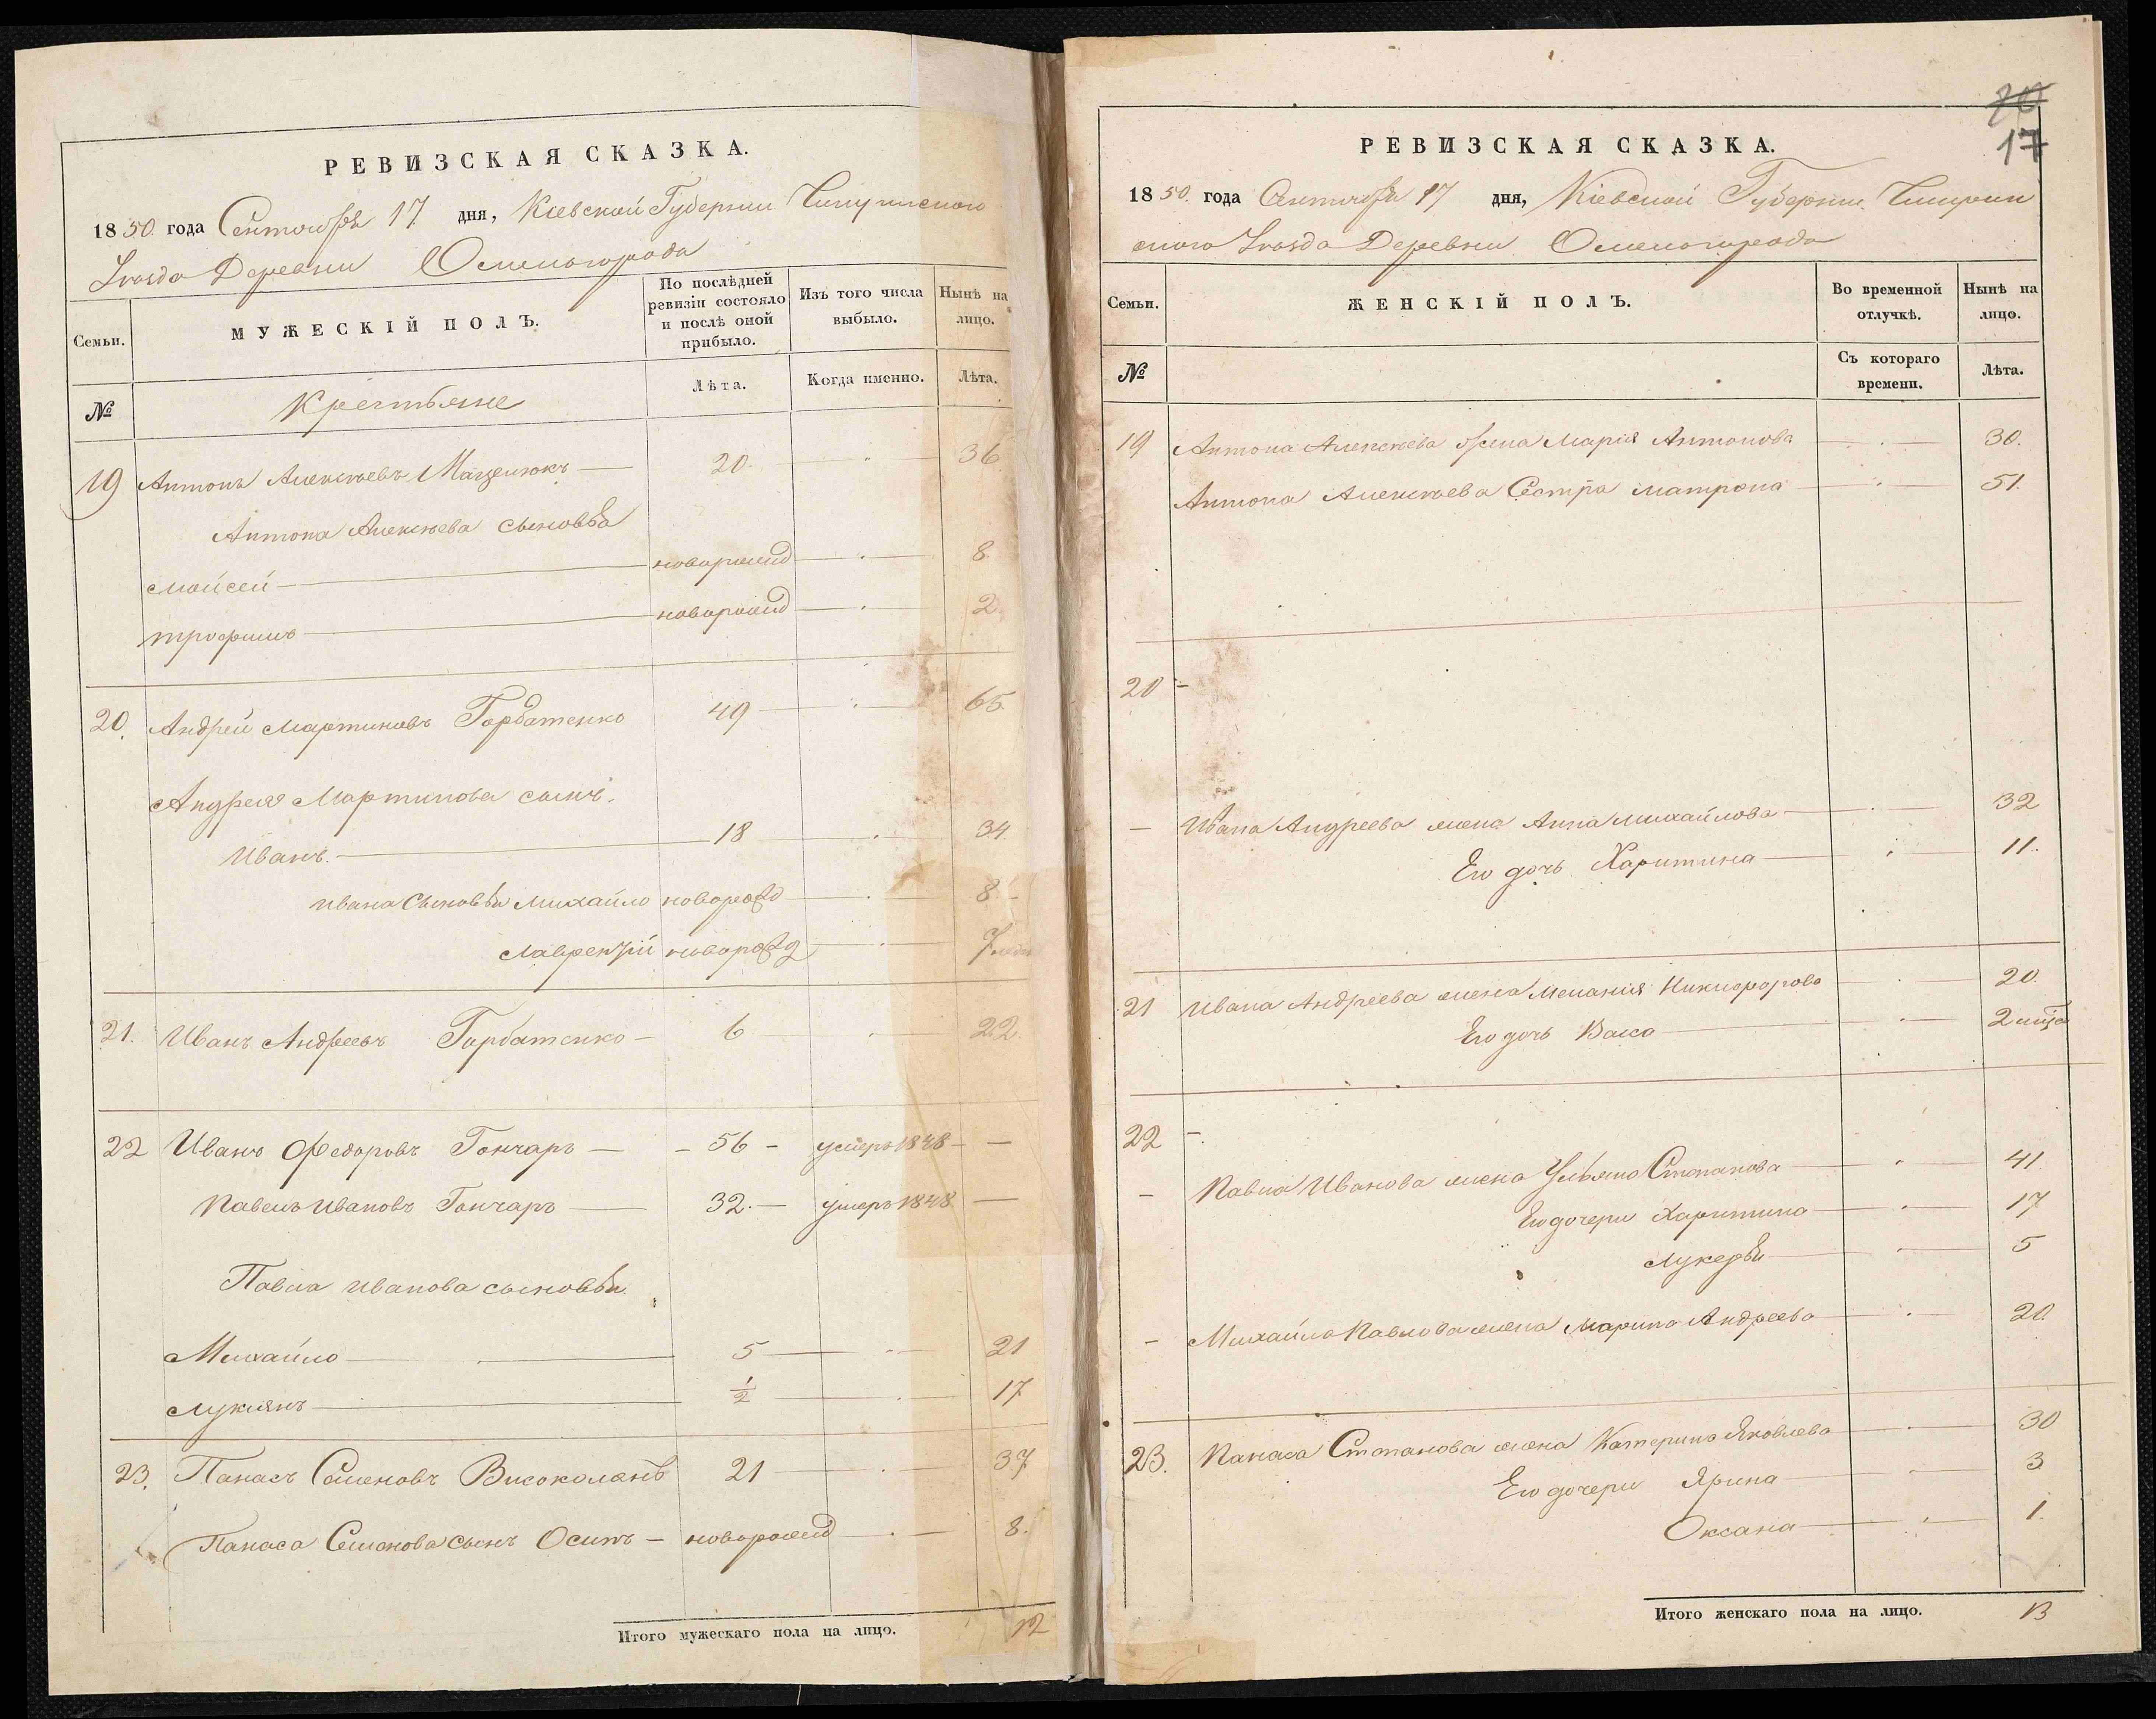 РЕВИЗСКАЯ СКАЗКА.
1850. года Сентября 17 дня, Кіевской Губерніи Чигиринскаго
Уѣзда Деревни Осиногорода
Семьи.
МУЖЕСКІЙ ПОЛЪ.
По послѣдней ревизіи состояло и послѣ оной прибыло.
Изъ того числа выбыло.
Нынѣ на лицо.
№
Крестьяне
Лѣта.
Когда именно.
Лѣта.
19 Антонъ Алексѣевъ 20. 36
Антона Алексѣева сыновья
Мойсей новорожд 8
Трофимъ новорожд 2
20. Андрей Мартиновъ Горбатенко 49 65
Андрея Мартинова сынъ.
Иванъ. 18 34
Ивана сыновья Михайло новорожд 8
Лаврентій новорожд 7
21. Иванъ Андреевъ Горбатенко 6 22
22 Иванъ Федоровъ Гончаръ 56 умеръ 1848 —
Павелъ Ивановъ Гончаръ 32. умеръ 1848 —
Павла Иванова сыновья
Михайло 5 21
Лукіянъ ½ 17
23. Панасъ Семеновъ Високолянъ 21 37
Панаса Семенова сынъ Осипъ новорожд 8.
Итого мужескаго пола на лицо. 12
20
17
РЕВИЗСКАЯ СКАЗКА.
1850. года Сентября 17 дня, Кіевской Губерніи Чигирин
скаго Уѣзда Деревни Осиногорода
Семьи.
ЖЕНСКІЙ ПОЛЪ.
Во временной отлучкѣ.
Нынѣ на лицо.
№
Съ котораго времени.
Лѣта.
19 Антона Алексѣева жена Марія Антонова 30.
Антона Алексѣева Сестра Матрона 51.
20 -
— Ивана Андреева жена Анна Михайлова 32
Его дочь Харитина 11.
21 Ивана Андреева жена Меланія Никифорова 20.
Его дочь Васса 2
22 -.
— Павла Иванова жена Ульяна Степанова 41
Его дочери Харитина 17
Лукерья 5
— Михайла Павлова жена Марина Андреева 20.
23. Панаса Степанова жена Катерина Яковлева 30
Его дочери Ярина 3
Оксана 1.
Итого женскаго пола на лицо. 13